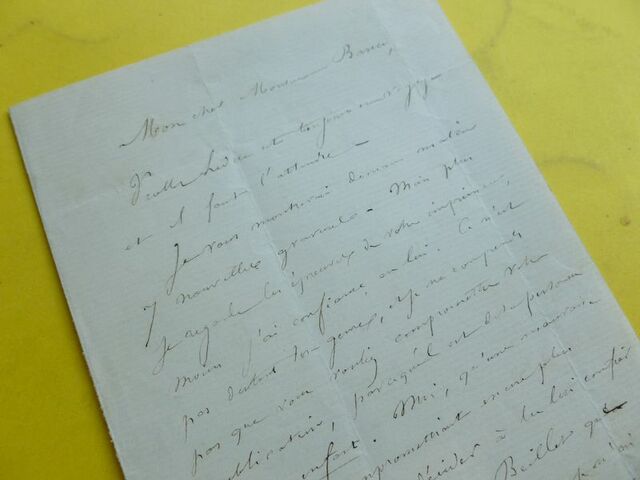 Mon cher Monsieur Barrier,
est toujours en voyage
et il faut l'attendre -
Je vous montrerai demain matin
7 nouvelles gravures. - Mais plus
je regarde les épreuves de votre imprimeur,
moins j'ai confiance en lui. Ce n'est
pas du tout son genre, et je ne comprends
pas que vous vouliez compromettre votre
publication, parce qu'il est dit personne
enfant. Moi, qu'une mauvaise
compromettrait encore plus
décider à lui confier
que